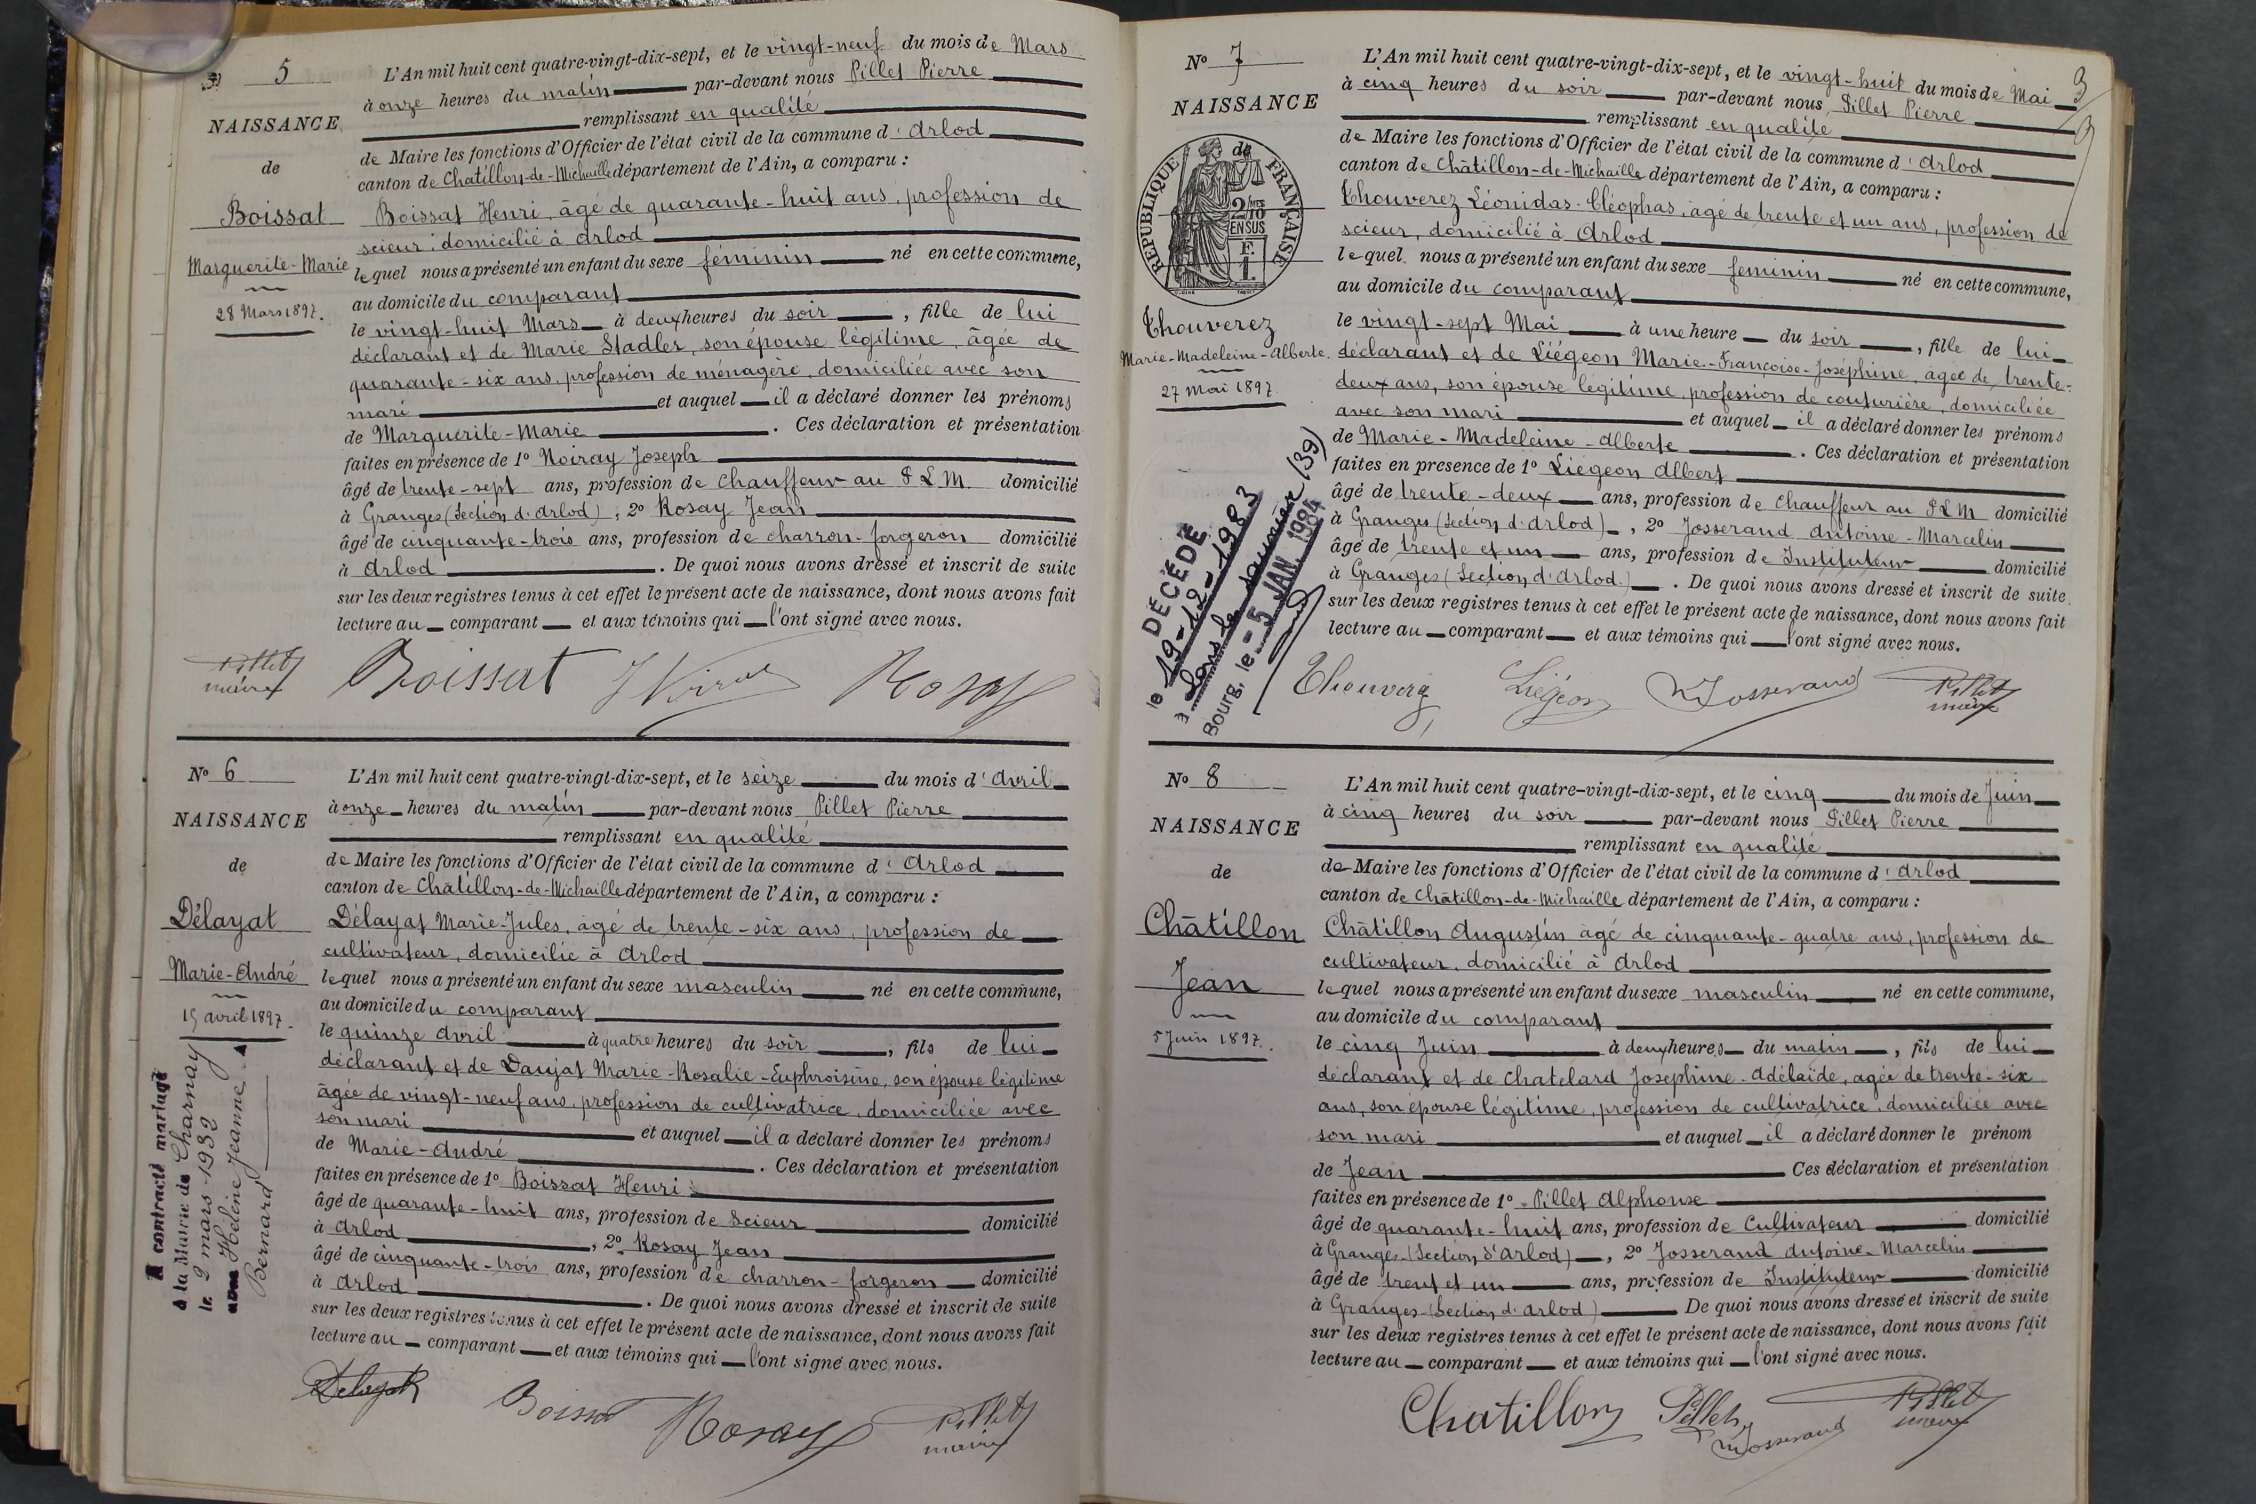 5
NAISSANCE
de
Boissat
Marguerite-Marie
28 Mars 1897.
L'An mil huit cent quatre-vingt-dix-sept, et le vingt-neuf du mois de Mars
à onze heures du matin par-devant nous Pillet Pierre
remplissant en qualité
de Maire les fonctions d'Officier de l'état civil de la commune d'Arlod
canton de Châtillon-de-Michaille département de l'Ain, a comparu :
Boissat Henri, âgé de quarante-huit ans, profession de
scieur, domicilié à Arlod
lequel nous a présenté un enfant du sexe féminin né en cette commune,
au domicile du comparant
le vingt-huit Mars à deux heures du soir, fille de lui
déclarant et de Marie Stadler, son épouse légitime, âgée de
quarante-six ans, profession de ménagère, domiciliée avec son
mari et auquel il a déclaré donner les prénoms
de Marguerite-Marie. Ces déclaration et présentation
faites en présence de 1° Noiray Joseph
âgé de trente-sept ans, profession de chauffeur au P L M. domicilié
à Granges (Section d'Arlod), 2° Rosay Jean
âgé de cinquante-trois ans, profession de charron-forgeron domicilié
à Arlod. De quoi nous avons dressé et inscrit de suite
sur les deux registres tenus à cet effet le présent acte de naissance, dont nous avons fait
lecture au comparant et aux témoins qui l'ont signé avec nous.
Pillet
maire
Boissat
Rosay
N° 6
NAISSANCE
de
Délayat
Marie-André
15 avril 1897.
A contracté mariage
à la Mairie de Charnay
le 2 mars 1932
avec Hélène Jeanne
Bernard
L'An mil huit cent quatre-vingt-dix-sept, et le seize du mois d'Avril
à onze heures du matin par-devant nous Pillet Pierre
remplissant en qualité
de Maire les fonctions d'Officier de l'état civil de la commune d'Arlod
canton de Châtillon-de-Michaille département de l'Ain, a comparu :
Délayat Marie-Jules, âgé de trente-six ans, profession de
cultivateur, domicilié à Arlod
lequel nous a présenté un enfant du sexe masculin né en cette commune,
au domicile du comparant
le quinze Avril à quatre heures du soir, fils de lui
déclarant et de Daujat Marie-Rosalie-Euphroisine, son épouse légitime
âgée de vingt-neuf ans, profession de cultivatrice, domiciliée avec
son mari et auquel il a déclaré donner les prénoms
de Marie-André. Ces déclaration et présentation
faites en présence de 1° Boissat Henri
âgé de quarante-huit ans, profession de Scieur domicilié
à Arlod, 2° Rosay Jean
âgé de cinquante-trois ans, profession de charron-forgeron domicilié
à Arlod. De quoi nous avons dressé et inscrit de suite
sur les deux registres tenus à cet effet le présent acte de naissance, dont nous avons fait
lecture au comparant et aux témoins qui l'ont signé avec nous.
Delayat
Boissat
Rosay
Pillet
maire
3
N° 7
NAISSANCE
de
RÉPUBLIQUE FRANÇAISE
2/10 EN SUS
F. 1.
Thouverez
Marie-Madeleine-Alberte.
27 Mai 1897.
DÉCÉDÉ
le 19-12-1983
à Lons le Saunier (39)
Bourg, le - 5 JAN. 1984
L'An mil huit cent quatre-vingt-dix-sept, et le vingt-huit du mois de Mai
à cinq heures du soir par-devant nous Pillet Pierre
remplissant en qualité
de Maire les fonctions d'Officier de l'état civil de la commune d'Arlod
canton de Châtillon-de-Michaille département de l'Ain, a comparu :
Thouverez Léonidas-Cléophas, âgé de trente et un ans, profession de
scieur, domicilié à Arlod
lequel nous a présenté un enfant du sexe féminin né en cette commune,
au domicile du comparant
le vingt-sept Mai à une heure du soir, fille de lui
déclarant et de Liégeon Marie-Françoise-Joséphine, âgée de trente-
deux ans, son épouse légitime, profession de couturière, domiciliée
avec son mari et auquel il a déclaré donner les prénoms
de Marie-Madeleine-Alberte. Ces déclaration et présentation
faites en présence de 1° Liégeon Albert
âgé de trente-deux ans, profession de chauffeur au P L M domicilié
à Granges (Section d'Arlod), 2° Josserand Antoine-Marcelin
âgé de trente et un ans, profession de Instituteur domicilié
à Granges (Section d'Arlod.). De quoi nous avons dressé et inscrit de suite
sur les deux registres tenus à cet effet le présent acte de naissance, dont nous avons fait
lecture au comparant et aux témoins qui l'ont signé avec nous.
Thouverez
Liégeon
Josserand
Pillet
maire
N° 8
NAISSANCE
de
Châtillon
Jean
5 Juin 1897.
L'An mil huit cent quatre-vingt-dix-sept, et le cinq du mois de Juin
à cinq heures du soir par-devant nous Pillet Pierre
remplissant en qualité
de Maire les fonctions d'Officier de l'état civil de la commune d'Arlod
canton de Châtillon-de-Michaille département de l'Ain, a comparu :
Châtillon Augustin âgé de cinquante-quatre ans, profession de
cultivateur, domicilié à Arlod
lequel nous a présenté un enfant du sexe masculin né en cette commune,
au domicile du comparant
le cinq Juin à deux heures du matin, fils de lui
déclarant et de Chatelard Josephine-Adélaïde, âgée de trente-six
ans, son épouse légitime, profession de cultivatrice, domiciliée avec
son mari et auquel il a déclaré donner le prénom
de Jean Ces déclaration et présentation
faites en présence de 1° Pillet Alphonse
âgé de quarante-huit ans, profession de Cultivateur domicilié
à Granges (Section d'Arlod), 2° Josserand Antoine-Marcelin
âgé de trent et un ans, profession de Instituteur domicilié
à Granges (Section d'Arlod) De quoi nous avons dressé et inscrit de suite
sur les deux registres tenus à cet effet le présent acte de naissance, dont nous avons fait
lecture au comparant et aux témoins qui l'ont signé avec nous.
Chatillon
Pillet
Josserand
Pillet
maire